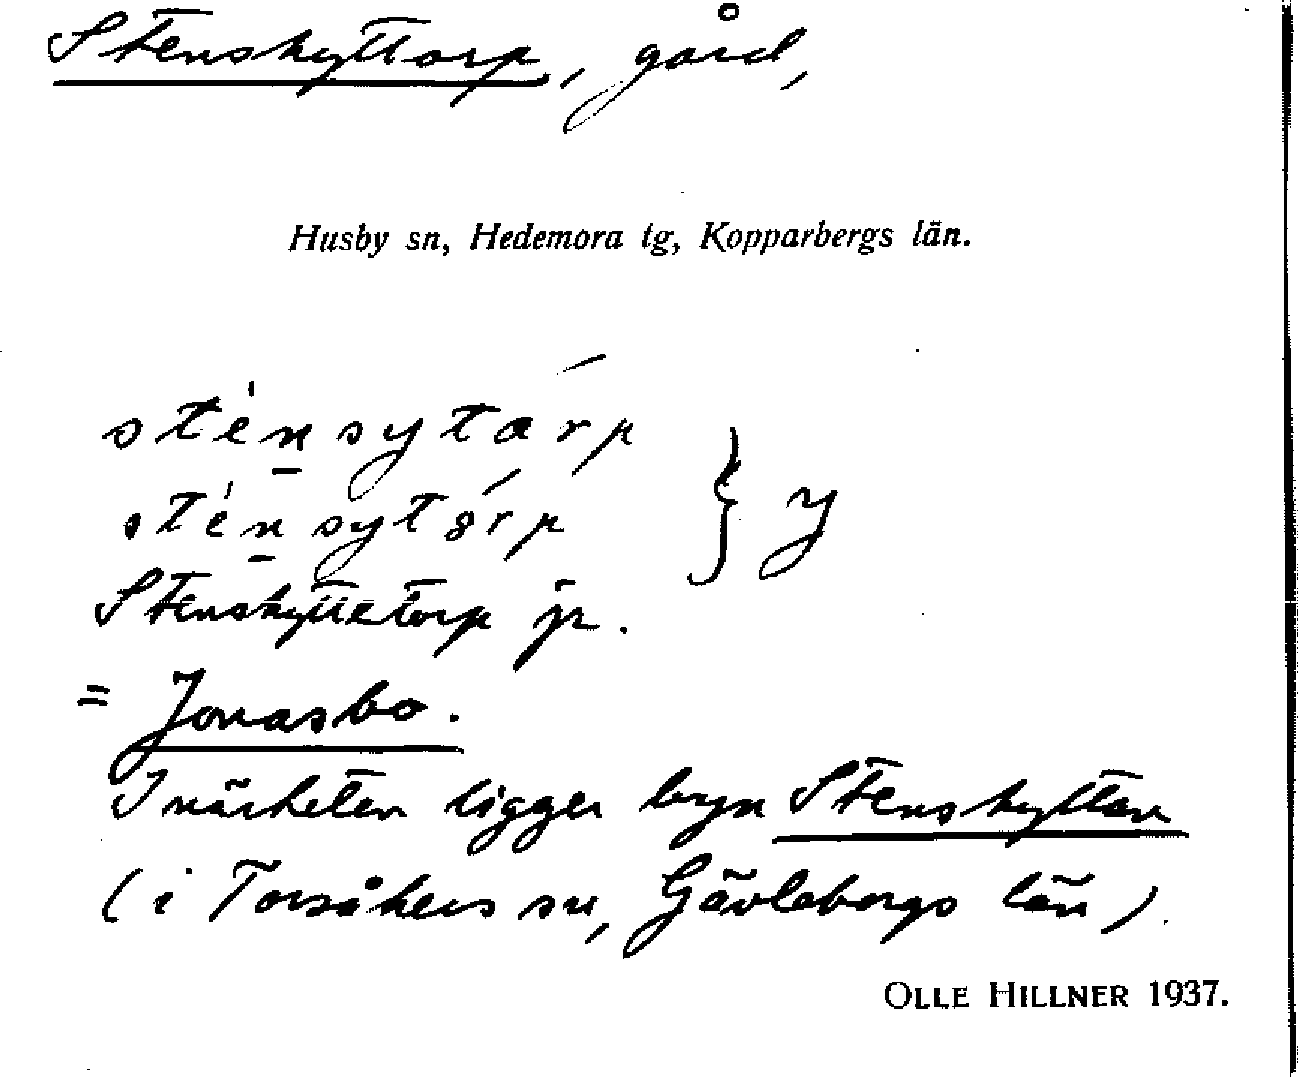 Stenskyttorp, gård,
Husby sn, Hedemora tg, Kopparbergs län.
sténsytárp
sténsytórp } y
Stenskyttetorp jr.
= Jonasbo.
I närheten ligger byn Stenskyttan
(i Torsåkers sn, Gävleborgs län).
OLLE HILLNER 1937.